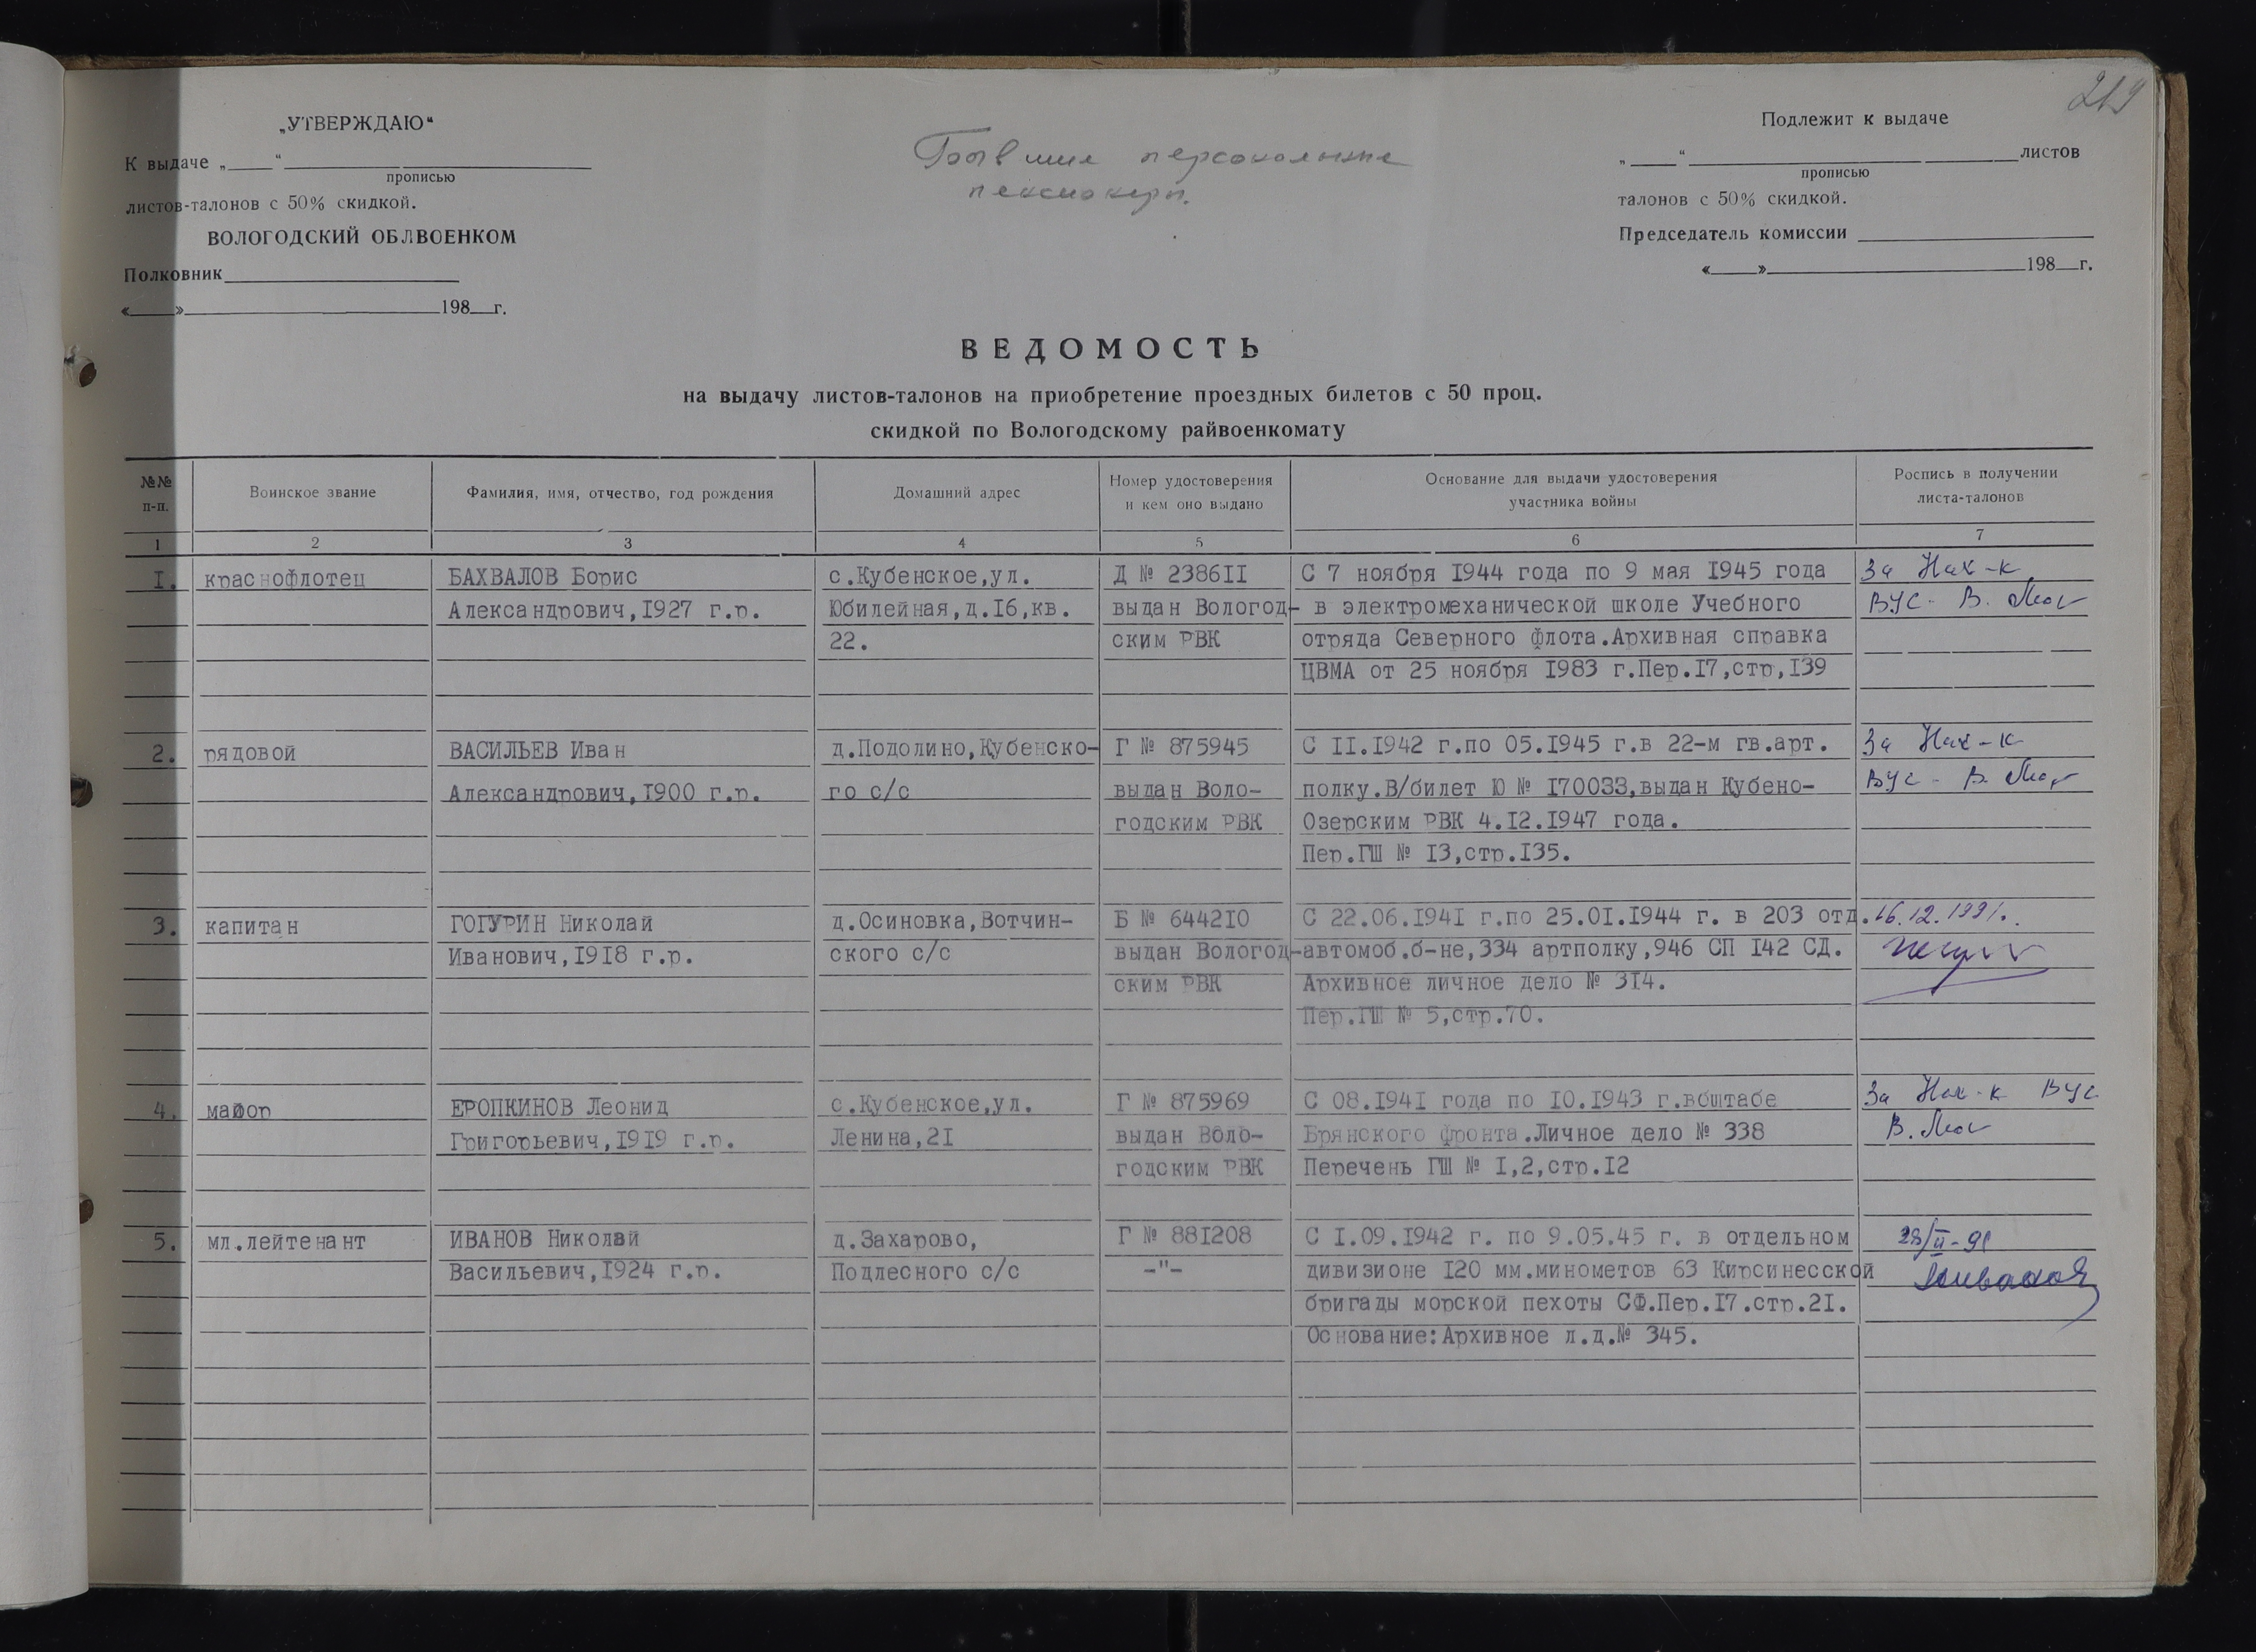 219
„УТВЕРЖДАЮ“
К выдаче „____“ ____
прописью
листов-талонов с 50% скидкой.
ВОЛОГОДСКИЙ ОБЛВОЕНКОМ
Полковник
«____» ____ 198__г.
Бывшие персональные
пенсионеры.
Подлежит к выдаче
„____“ ____ листов
прописью
талонов с 50% скидкой.
Председатель комиссии
«____» ____ 198__г.
ВЕДОМОСТЬ
на выдачу листов-талонов на приобретение проездных билетов с 50 проц.
скидкой по Вологодскому райвоенкомату
№№
п-п.
Воинское звание
Фамилия, имя, отчество, год рождения
Домашний адрес
Номер удостоверения
и кем оно выдано
Основание для выдачи удостоверения
участника войны
Роспись в получении
листа-талонов
1 2 3 4 5 6 7
I. краснофлотец
БАХВАЛОВ Борис
Александрович,I927 г.р.
с.Кубенское,ул.
Юбилейная,д.I6,кв.
22.
Д № 2386II
выдан Вологод-
ским РВК
С 7 ноября I944 года по 9 мая I945 года
в электромеханической школе Учебного
отряда Северного флота.Архивная справка
ЦВМА от 25 ноября I983 г.Пер.I7,стр,I39
За Нач-к
ВУС - В.
2. рядовой
ВАСИЛЬЕВ Иван
Александрович,I900 г.р.
д.Подолино,Кубенско-
го с/с
Г № 875945
выдан Воло-
годским РВК
С II.I942 г.по 05.I945 г.в 22-м гв.арт.
полку.В/билет Ю № I70033,выдан Кубено-
Озерским РВК 4.I2.I947 года.
Пер.ГШ № I3,стр.I35.
За Нач-к
ВУС - В.
3. капитан
ГОГУРИН Николай
Иванович,I9I8 г.р.
д.Осиновка,Вотчин-
ского с/с
Б № 6442I0
выдан Вологод-
ским РВК
С 22.06.I94I г.по 25.0I.I944 г. в 203 отд.
автомоб.б-не,334 артполку,946 СП I42 СД.
Архивное личное дело № 3I4.
Пер.ГШ № 5,стр.70.
16.12.1991.
4. майор
ЕРОПКИНОВ Леонид
Григорьевич,I9I9 г.р.
с.Кубенское,ул.
Ленина,2I
Г № 875969
выдан Воло-
годским РВК
С 08.I94I года по I0.I943 г.вбштабе
Брянского фронта.Личное дело № 338
Перечень ГШ № I,2,стр.I2
За Нач-к ВУС
В.
5. мл.лейтенант
ИВАНОВ Николай
Васильевич,I924 г.р.
д.Захарово,
Подлесного с/с
Г № 88I208
-"-
С I.09.I942 г. по 9.05.45 г. в отдельном
дивизионе I20 мм.минометов 63 Кирсинесской
бригады морской пехоты СФ.Пер.I7.стр.2I.
Основание:Архивное л.д.№ 345.